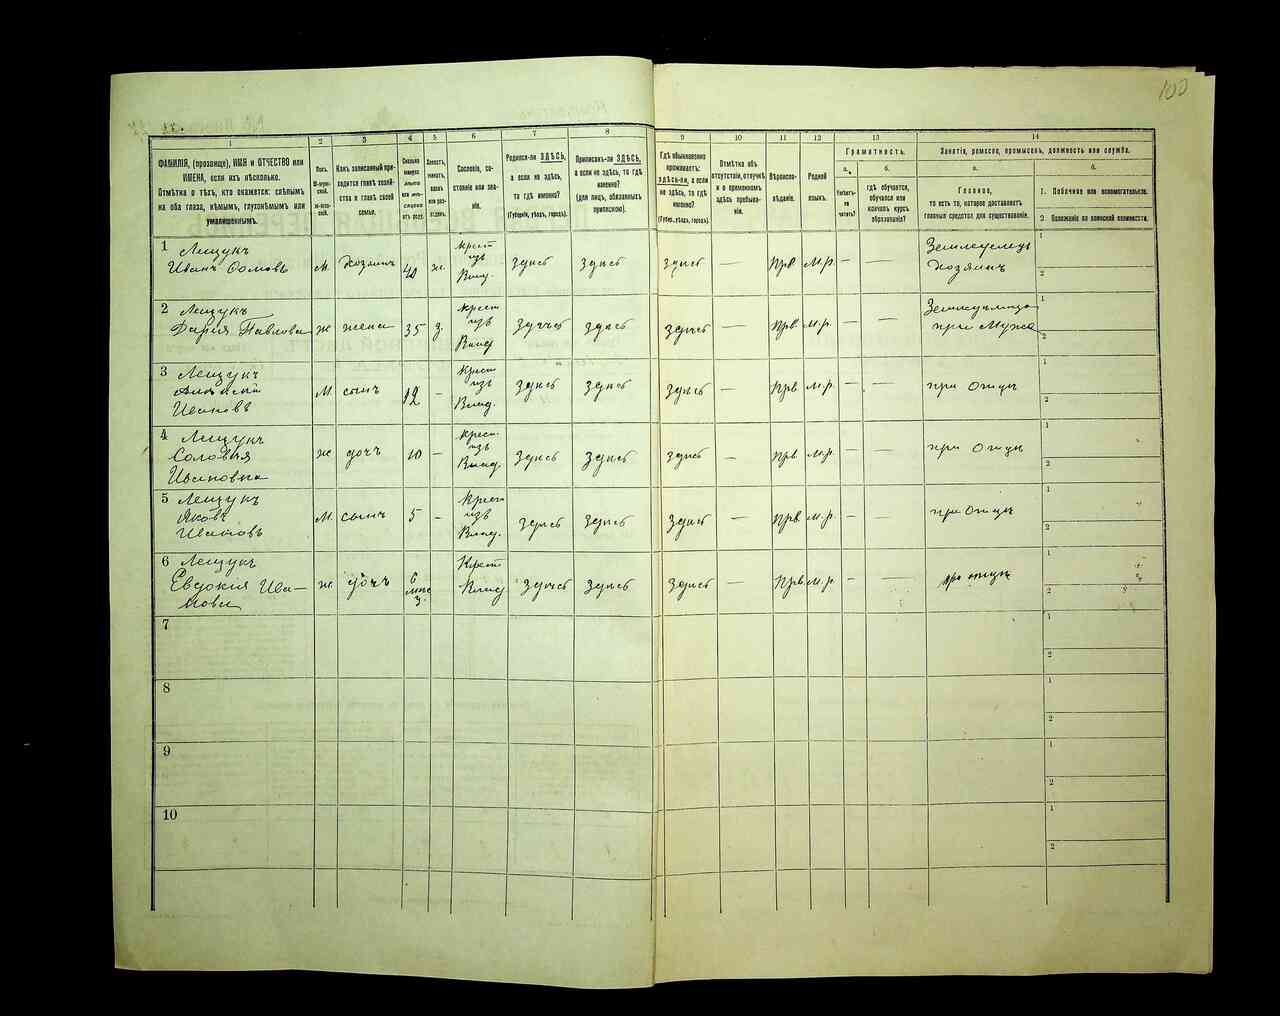 100
1 2 3 4 5 6 7 8 9 10 11 12 13 14
ФАМИЛІЯ, (прозвище), ИМЯ и ОТЧЕСТВО или
ИМЕНА, если ихъ нѣсколько.
Отмѣтка о тѣхъ, кто окажется: слѣпымъ
на оба глаза, нѣмымъ, глухонѣмымъ или
умалишеннымъ.
Полъ.
М-мужской.
Ж-женскій.
Какъ записанный приходится
главѣ хозяйства
и главѣ своей
семьи.
Сословіе, состояніе
или званіе.
Родился-ли ЗДѢСЬ,
а если не здѣсь,
то гдѣ именно?
(Губернія, уѣздъ, городъ).
Приписанъ-ли ЗДѢСЬ,
а если не здѣсь, то гдѣ
именно?
(для лицъ, обязанныхъ
припискою).
Гдѣ обыкновенно
проживаетъ:
здѣсь-ли, а если
не здѣсь, то гдѣ
именно?
(Губ., уѣздъ, городъ).
Отмѣтка объ
отсутствіи, отлучкѣ
и о временномъ
здѣсь пребываніи.
Вѣроисповѣданіе.
Родной
языкъ.
Грамотность.
а.
Умѣетъ-ли
читать?
б.
гдѣ обучается,
обучался или
кончилъ курсъ
образованія?
Занятія, ремесло, промыселъ, должность или служба.
а.
Главное,
то есть то, которое доставляетъ
главныя средства для существованія.
б.
1. Побочное или вспомогательное.
2. Положеніе по воинской повинности.
1 Лещукъ
Иванъ Сомовъ М. хозяинъ 40 ж. крест изъ Влад. здѣсь здѣсь здѣсь — Прв М.р. — — Земледѣлецъ хозяинъ 1 2
2 Лещукъ
Дарія Павлова ж жена 35 з. крест изъ Влад здѣсь здѣсь здѣсь — Прв. М.р. — — при мужѣ 1 2
3 Лещукъ
Ивановъ М. сынъ 12 - крест изъ Влад. здѣсь здѣсь здѣсь — Прв М.р. — — при отцѣ 1 2
4 Лещукъ
Ивановна ж дочь 10 - крест. изъ Влад. здѣсь здѣсь здѣсь — Прв М.р. — — при отцѣ 1 2
5 Лещукъ
Яковъ
Ивановъ М. сынъ 5 - Крест изъ Влад. здѣсь здѣсь здѣсь — Прв. М.р. — — при отцѣ 1 2
6 Лещукъ
Евдокія Ива-
нова ж. дочь 6 Крест Влад здѣсь здѣсь здѣсь — Прв. М.р. — — при отцѣ 1 2
7 1 2
8 1 2
9 1 2
10 1 2